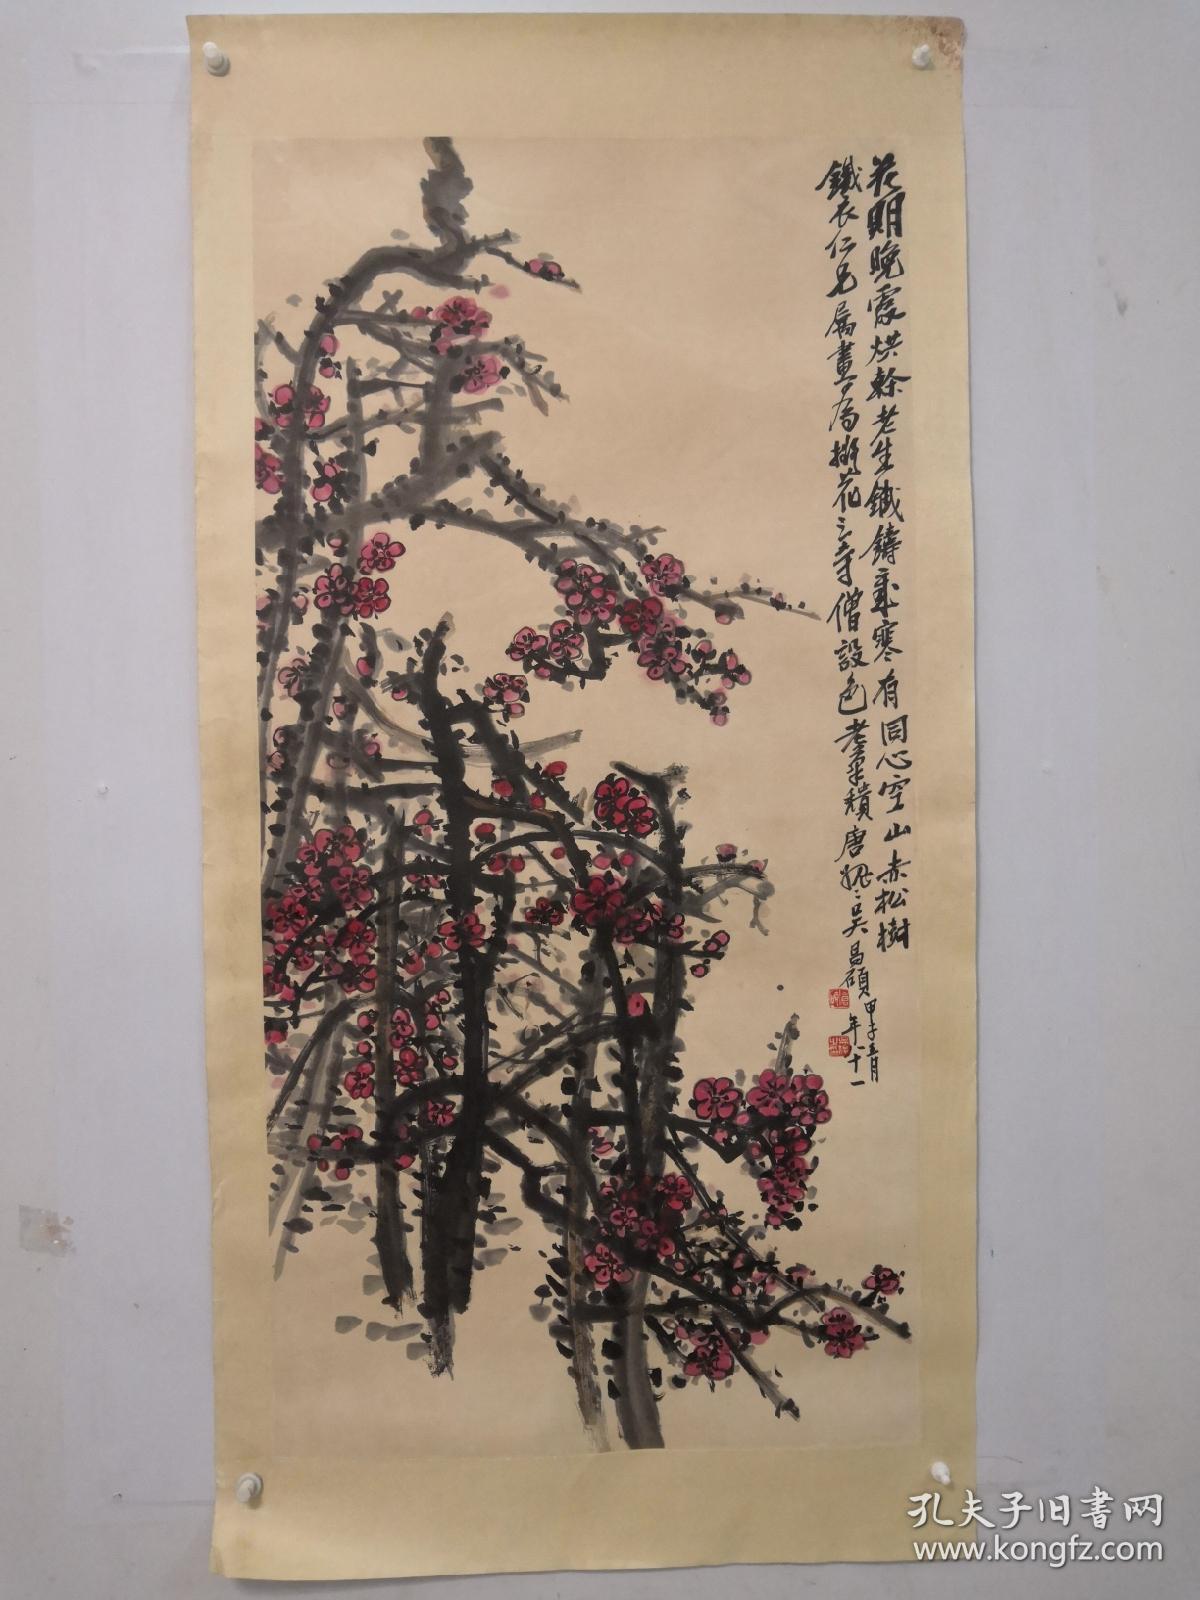 花明晚霞烘幹老生鐵鑄歲寒有同心空山赤松樹
鐵衣仁兄屬畫為擬花之寺僧設色
吳昌碩
甲子
年八十一
孔夫子旧书网
www.kongfz.com